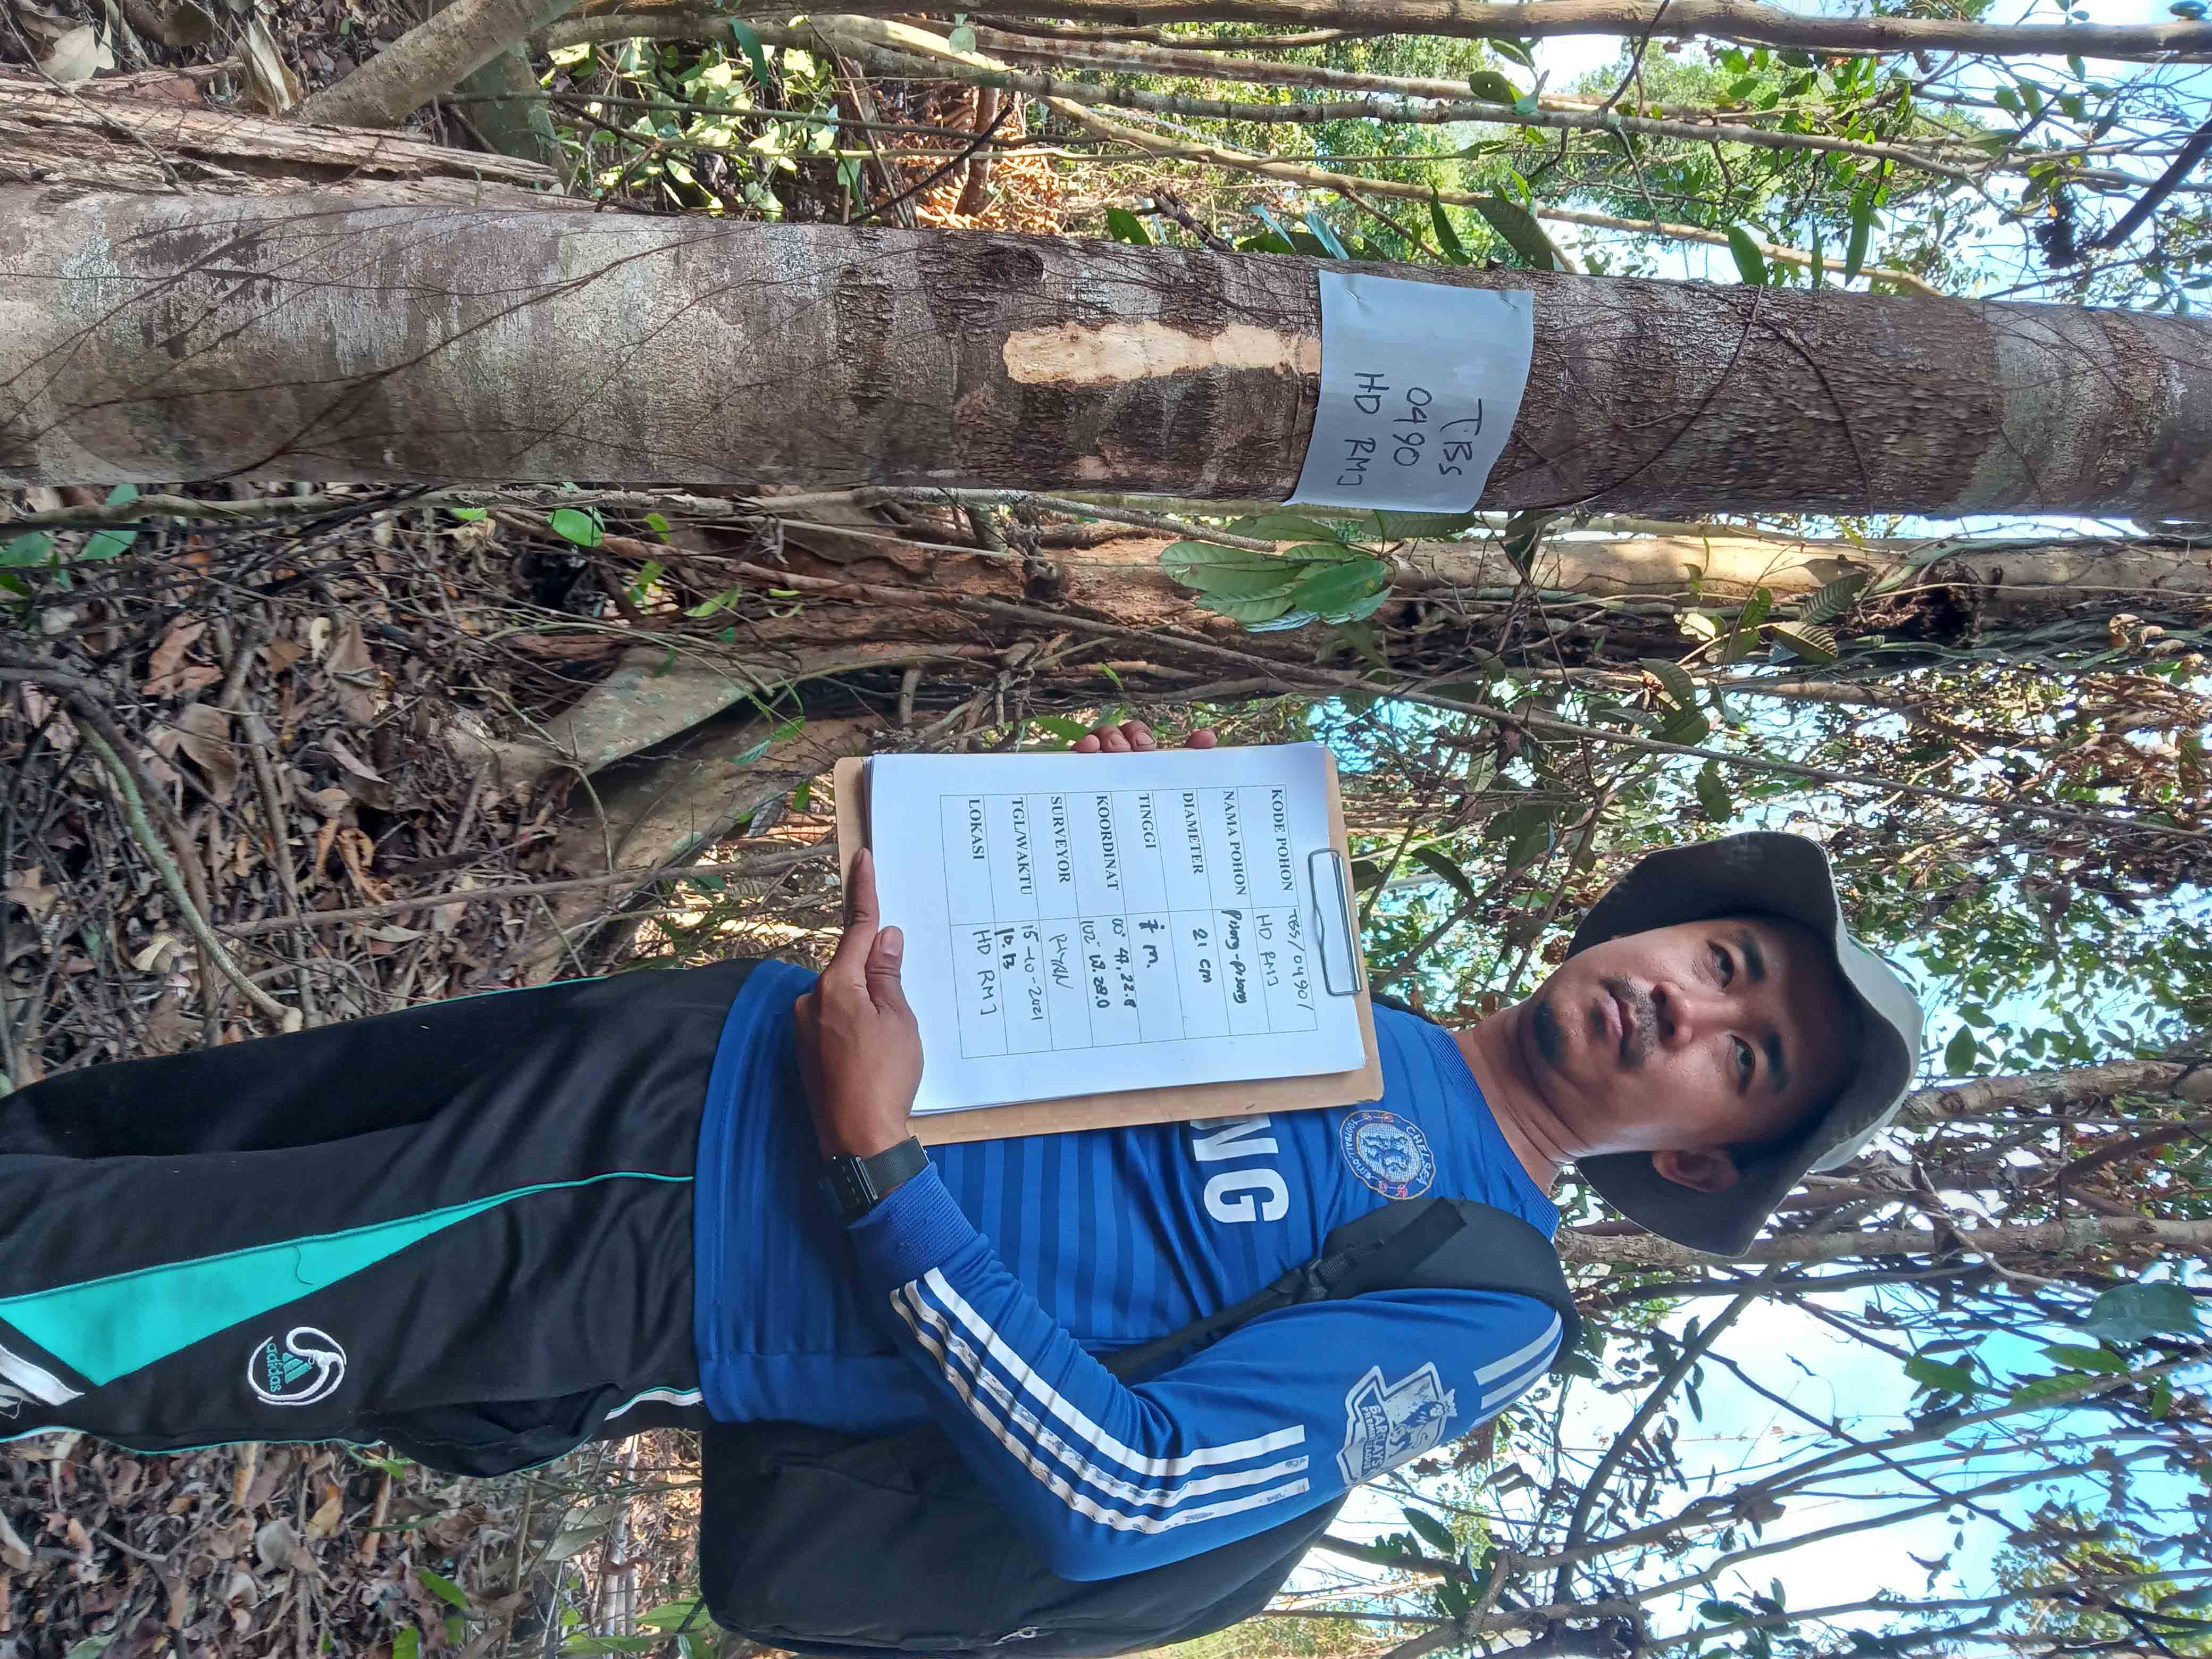 T.BS
0490
HD RMJ
KODE POHON TBS/0490/
HD RMJ
NAMA POHON Pisang-Pisang
DIAMETER 21 cm
TINGGI 7 m.
KOORDINAT 00° 44, 22.8
102° 13. 28.0
SURVEYOR
TGL/WAKTU 15-10-2021
LOKASI HD RMJ
CHELSEA
FOOTBALL CLUB
NG
BARCLAYS
PREMIER LEAGUE
adidas